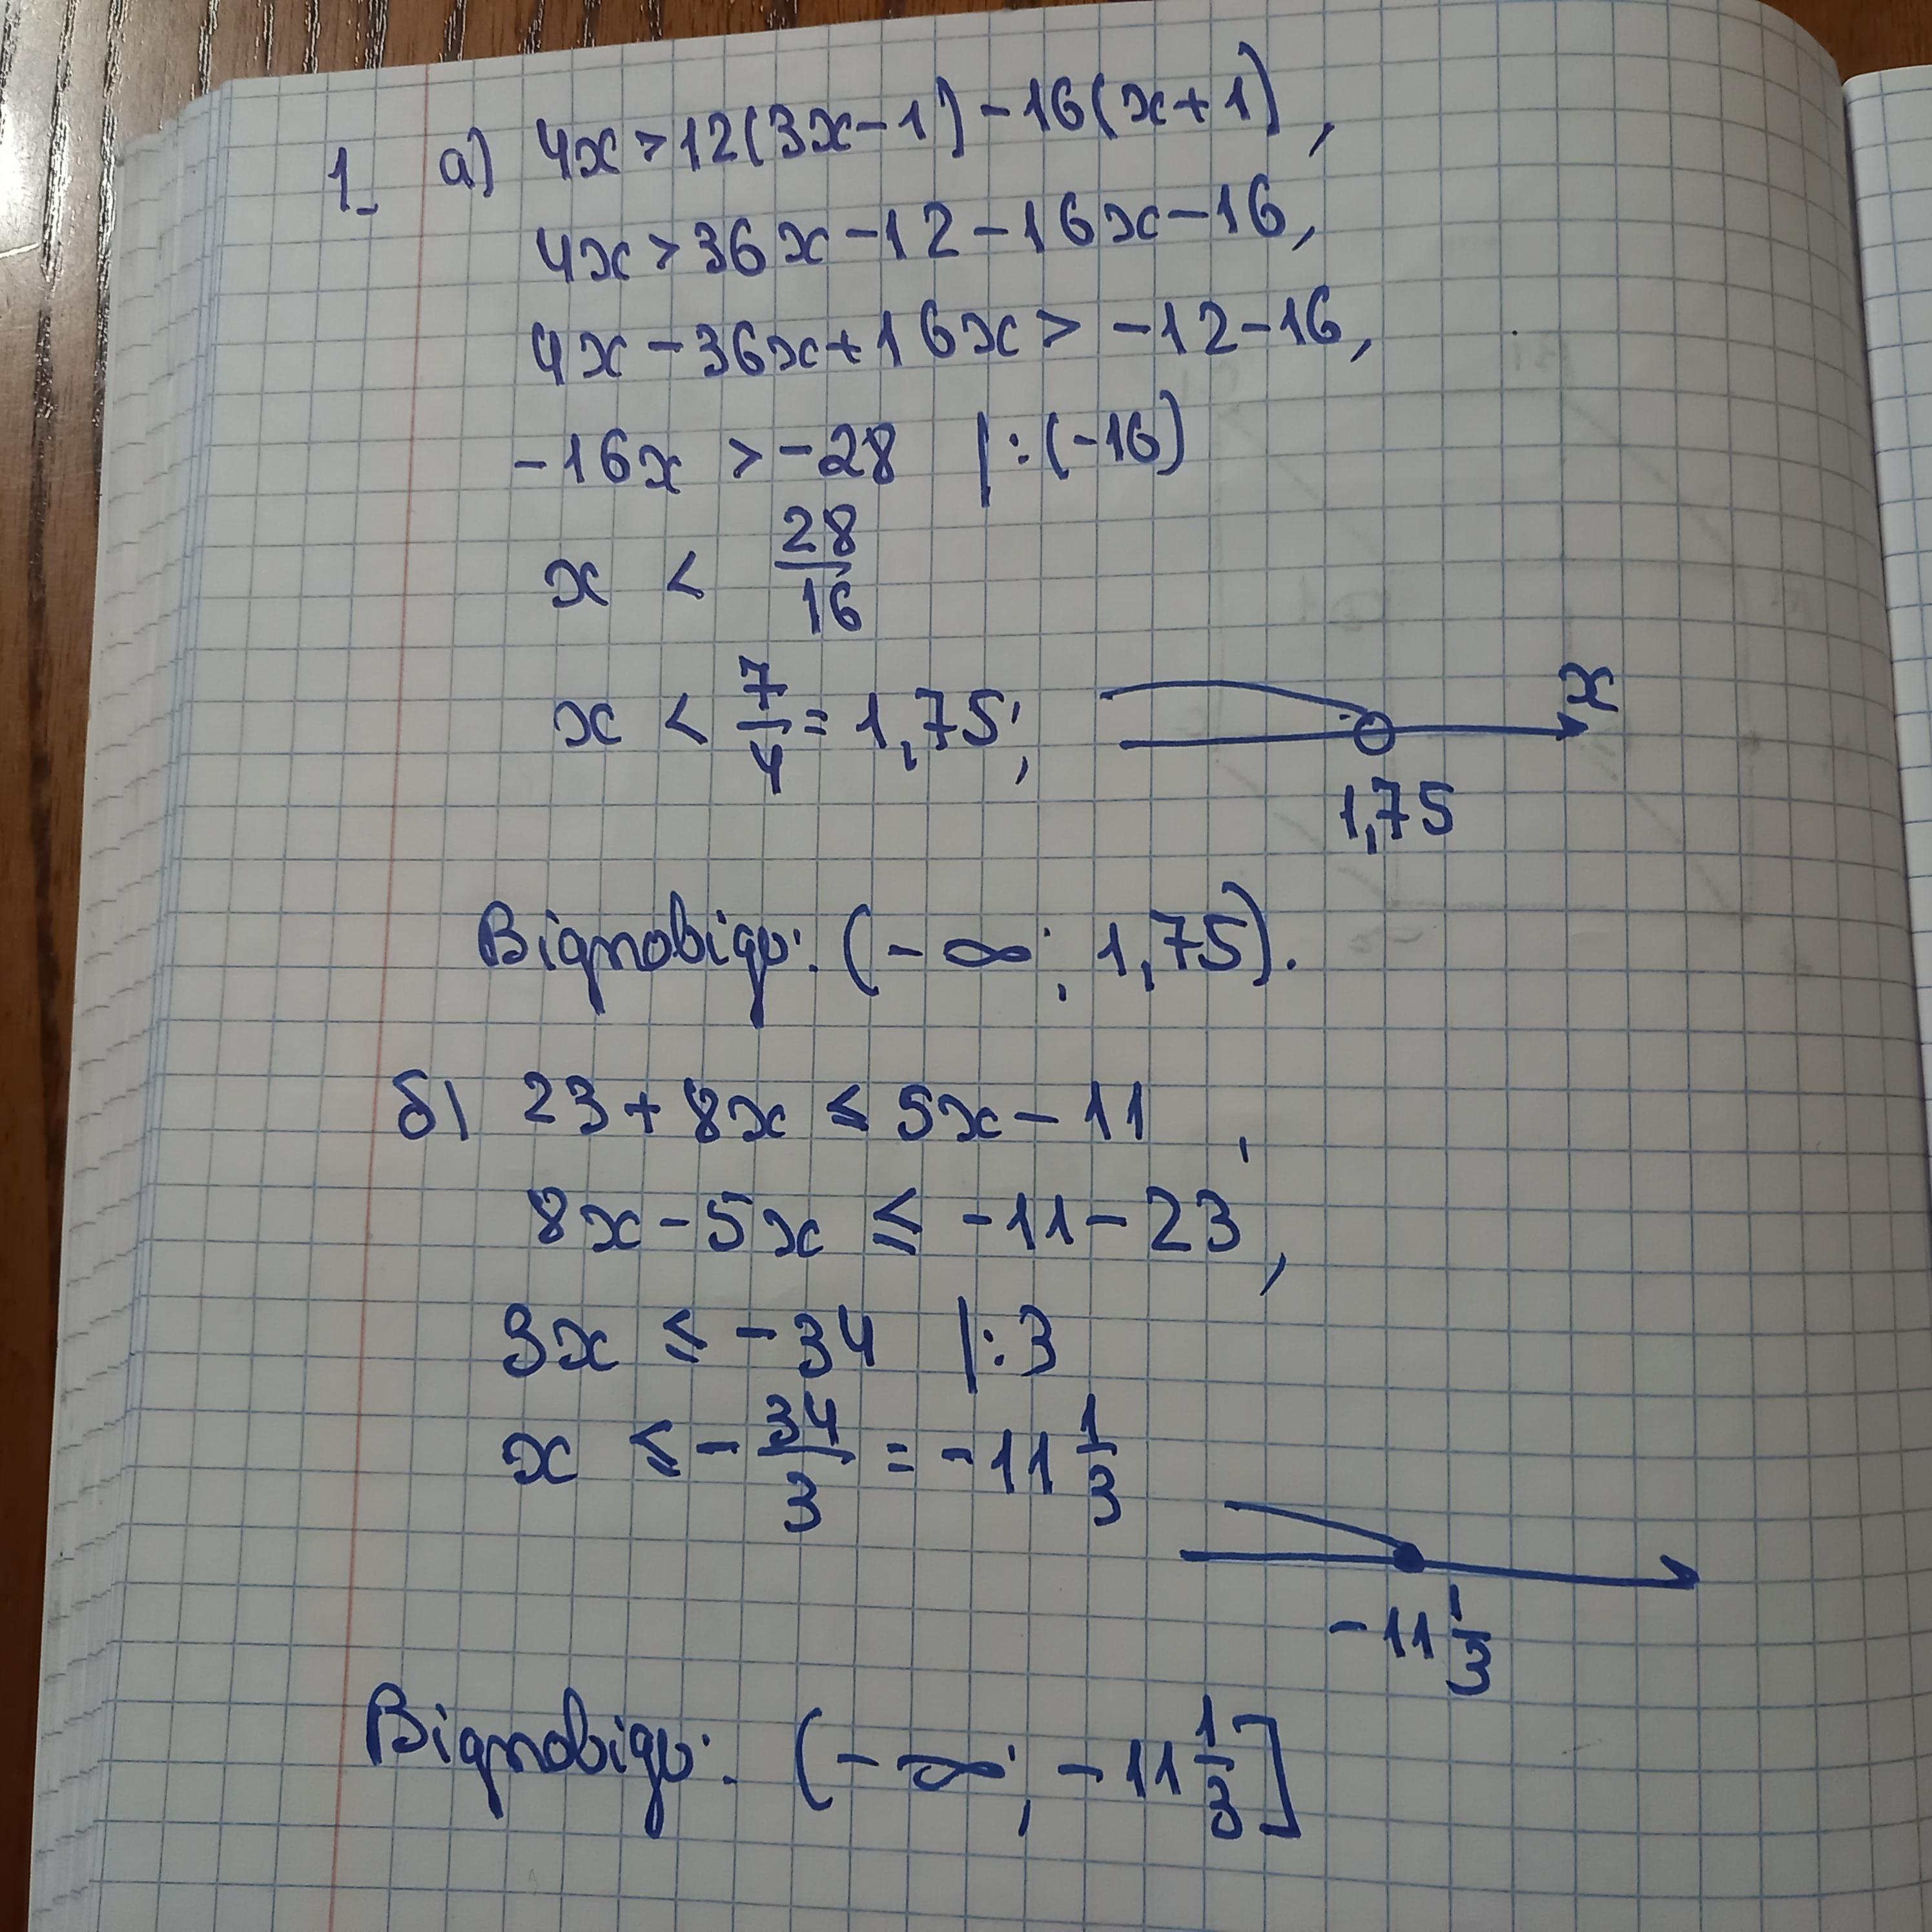 1. а) 4x > 12(3x-1) - 16(x+1),
4x > 36x - 12 - 16x - 16,
4x - 36x + 16x > -12 - 16,
-16x > -28 |:(-16)
x < 28/16
x < 7/4 = 1,75;
x
1,75
Відповідь: (-∞; 1,75).
б) 23 + 8x ≤ 5x - 11,
8x - 5x ≤ -11 - 23,
3x ≤ -34 |:3
x ≤ - 34/3 = -11 1/3
-11 1/3
Відповідь: (-∞; -11 1/3]